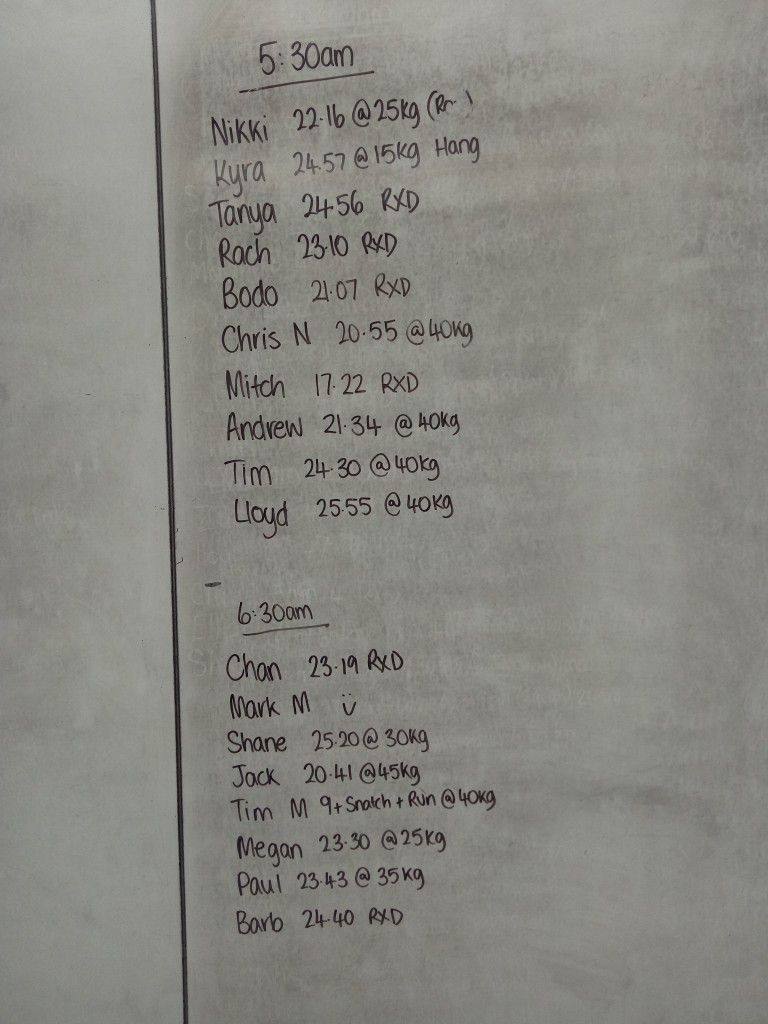 5:30am
Nikki 22.16 @25kg
Kyra 24.57 @15kg Hang
Tanya 24.56 RXD
Rach 23.10 RXD
Bodo 21.07 RXD
Chris N 20.55 @40kg
Mitch 17.22 RXD
Andrew 21.34 @40kg
Tim 24.30 @40kg
Lloyd 25.55 @40kg
6:30am
Chan 23.19 RXD
Mark M
Shane 25.20@30kg
Jack 20.41 @45kg
Tim M 9+Snatch+Run@40kg
Megan 23.30 @25kg
Paul 23.43 @35kg
Barb 24.40 RXD